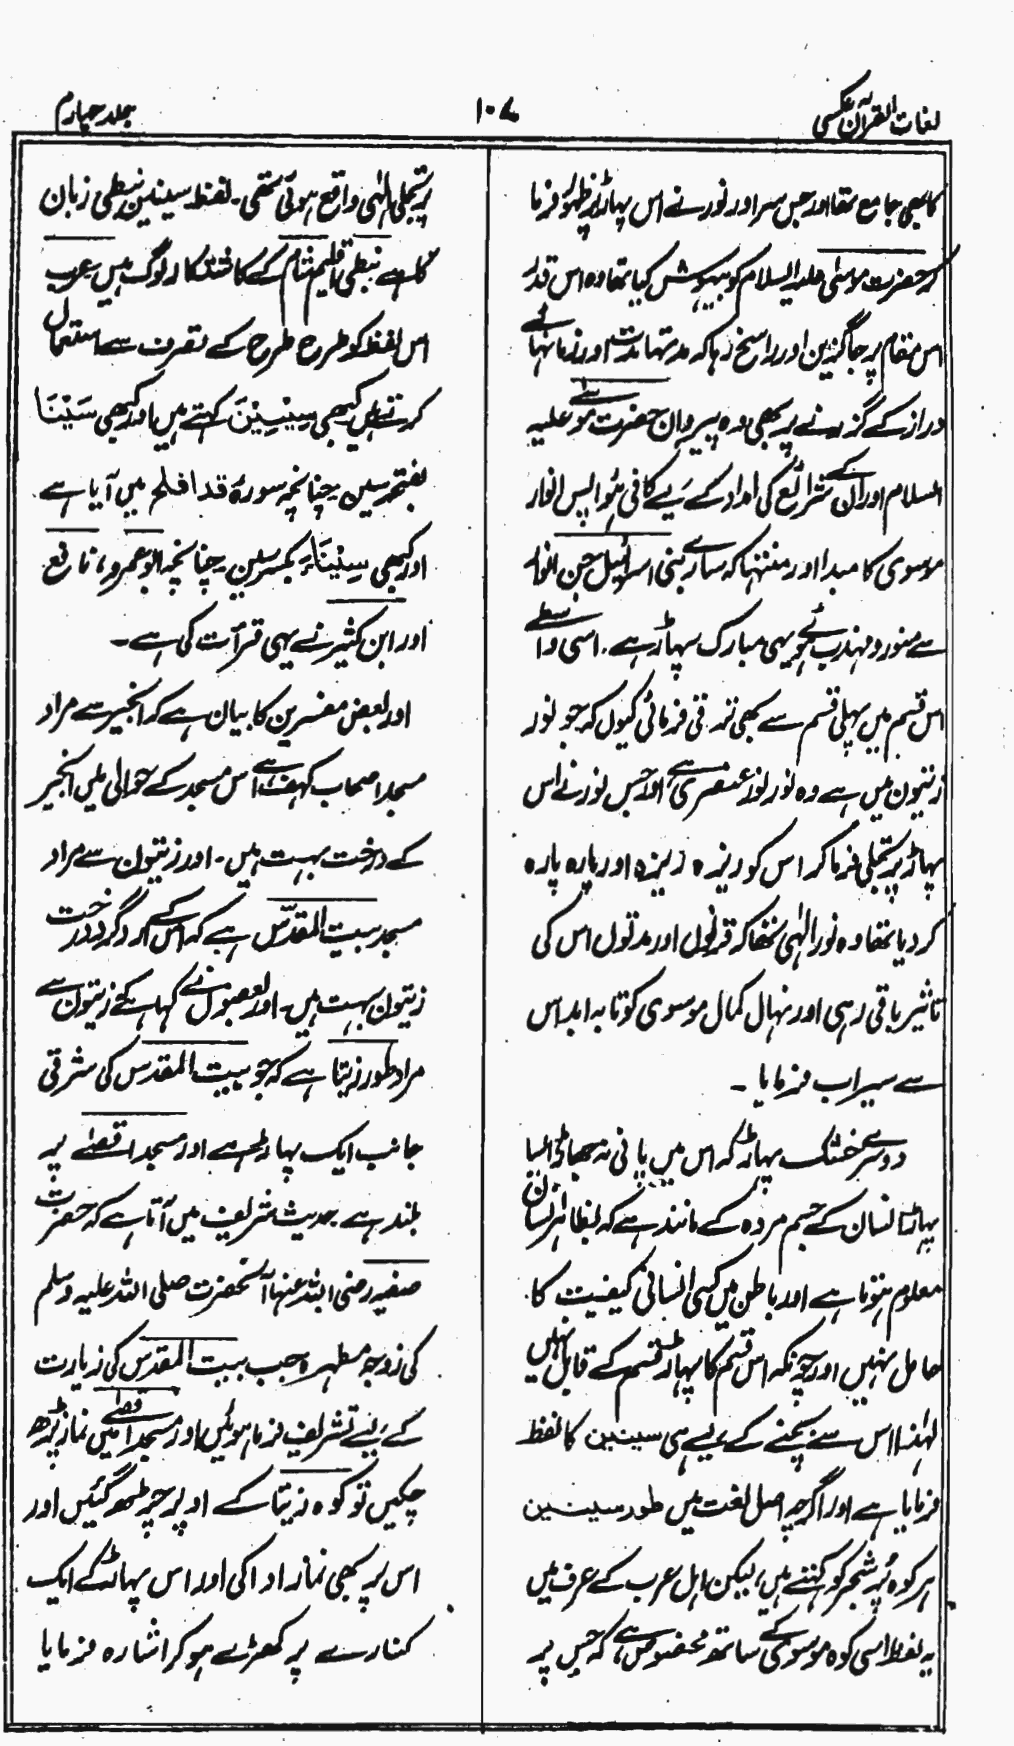 لغات القرآن عکسی
۱۰۷
جلد چہارم
کا بھی جامع تھا اور جس سر اور نور نے اس پہاڑ پر ظہور فرما
کر حضرت موسیٰ علیہ السلام کو بیہوش کیا تھا وہ اس قدر
اس مقام پر جاگزین اور راسخ رہا کہ مدتہا مدت اور زمانہائے
دراز کے گزرنے پر بھی وہ پیروان حضرت موسے علیہ
السلام اور ان کے شرائع کی امداد کے لیے کافی ہوا پس انوار
موسوی کا مبدا اور منتہا کہ سارے بنی اسرائیل جن انوار
سے منور و مہذب ہوئے یہی مبارک پہاڑ ہے۔ اسی واسطے
اس قسم میں پہلی قسم سے بھی ترقی فرمائی کیوں کہ جو نور
زیتون میں ہے وہ نور نور عنصری ہے اور جس نور نے اس
پہاڑ پر تجلی فرما کر اس کو ریزہ ریزہ اور پارہ پارہ
کر دیا تھا وہ نور الٰہی تھا کہ قرنوں اور مدتوں اس کی
تاثیر باقی رہی اور نہال کمال موسوی کو تا بہ ابد اس
سے سیراب فرمایا ۔
دوسرے خشک پہاڑ کہ اس میں پانی نہ جھاڑ ایسا
پہاڑ انسان کے جسم مردہ کے مانند ہے کہ بظاہر انسان
معلوم ہوتا ہے اور باطن میں کسی انسانی کیفیت کا
حامل نہیں اور چونکہ اس قسم کا پہاڑ قسم کے قابل نہیں
لہٰذا اس سے بچنے کے لیے ہی سینین کا لفظ
فرمایا ہے اور اگرچہ اصل لغت میں طور سینین
ہر کوہ پر شجر کو کہتے ہیں، لیکن اہل عرب کے عرف میں
یہ لفظ اسی کوہ موسوی کے ساتھ مخصوص ہے کہ جس پر
پر تجلی الٰہی واقع ہوئی تھی۔ لفظ سینین نبطی زبان
کا ہے نبطی اقلیم شام کے کاشتکار لوگ ہیں عرب
اس لفظ کو طرح طرح کے تصرف سے استعمال
کرتے ہیں کبھی سِیْنِیْنَ کہتے ہیں اور کبھی سَیْنَا
بفتح سین چنانچہ سورۂ قد افلح میں آیا ہے
اور کبھی سِیْنَاءَ بکسر سین چنانچہ ابو عمرو، نافع
اور ابن کثیر نے یہی قرأت کی ہے۔
اور بعض مفسرین کا بیان ہے کہ انجیر سے مراد
مسجد اصحاب کہف ہے اس مسجد کے حوالی میں انجیر
کے درخت بہت ہیں۔ اور زیتون سے مراد
مسجد بیت المقدس ہے کہ اس کے ارد گرد درخت
زیتون بہت ہیں۔ اور بعضوں نے کہا ہے کہ زیتون سے
مراد طور زیتا ہے کہ جو بیت المقدس کی شرقی
جانب ایک پہاڑ ہے اور مسجد اقصے پر
بلند ہے حدیث شریف میں آتا ہے کہ حضرت
صفیہ رضی اللہ عنہا آنحضرت صلی اللہ علیہ وسلم
کی زوجہ مطہرہ جب بیت المقدس کی زیارت
کے لیے تشریف فرما ہوئیں اور مسجد اقصے میں نماز پڑھ
چکیں تو کوہ زیتا کے اوپر چڑھ گئیں اور
اس پر بھی نماز ادا کی اور اس پہاڑ کے ایک
کنارے پر کھڑے ہو کر اشارہ فرمایا